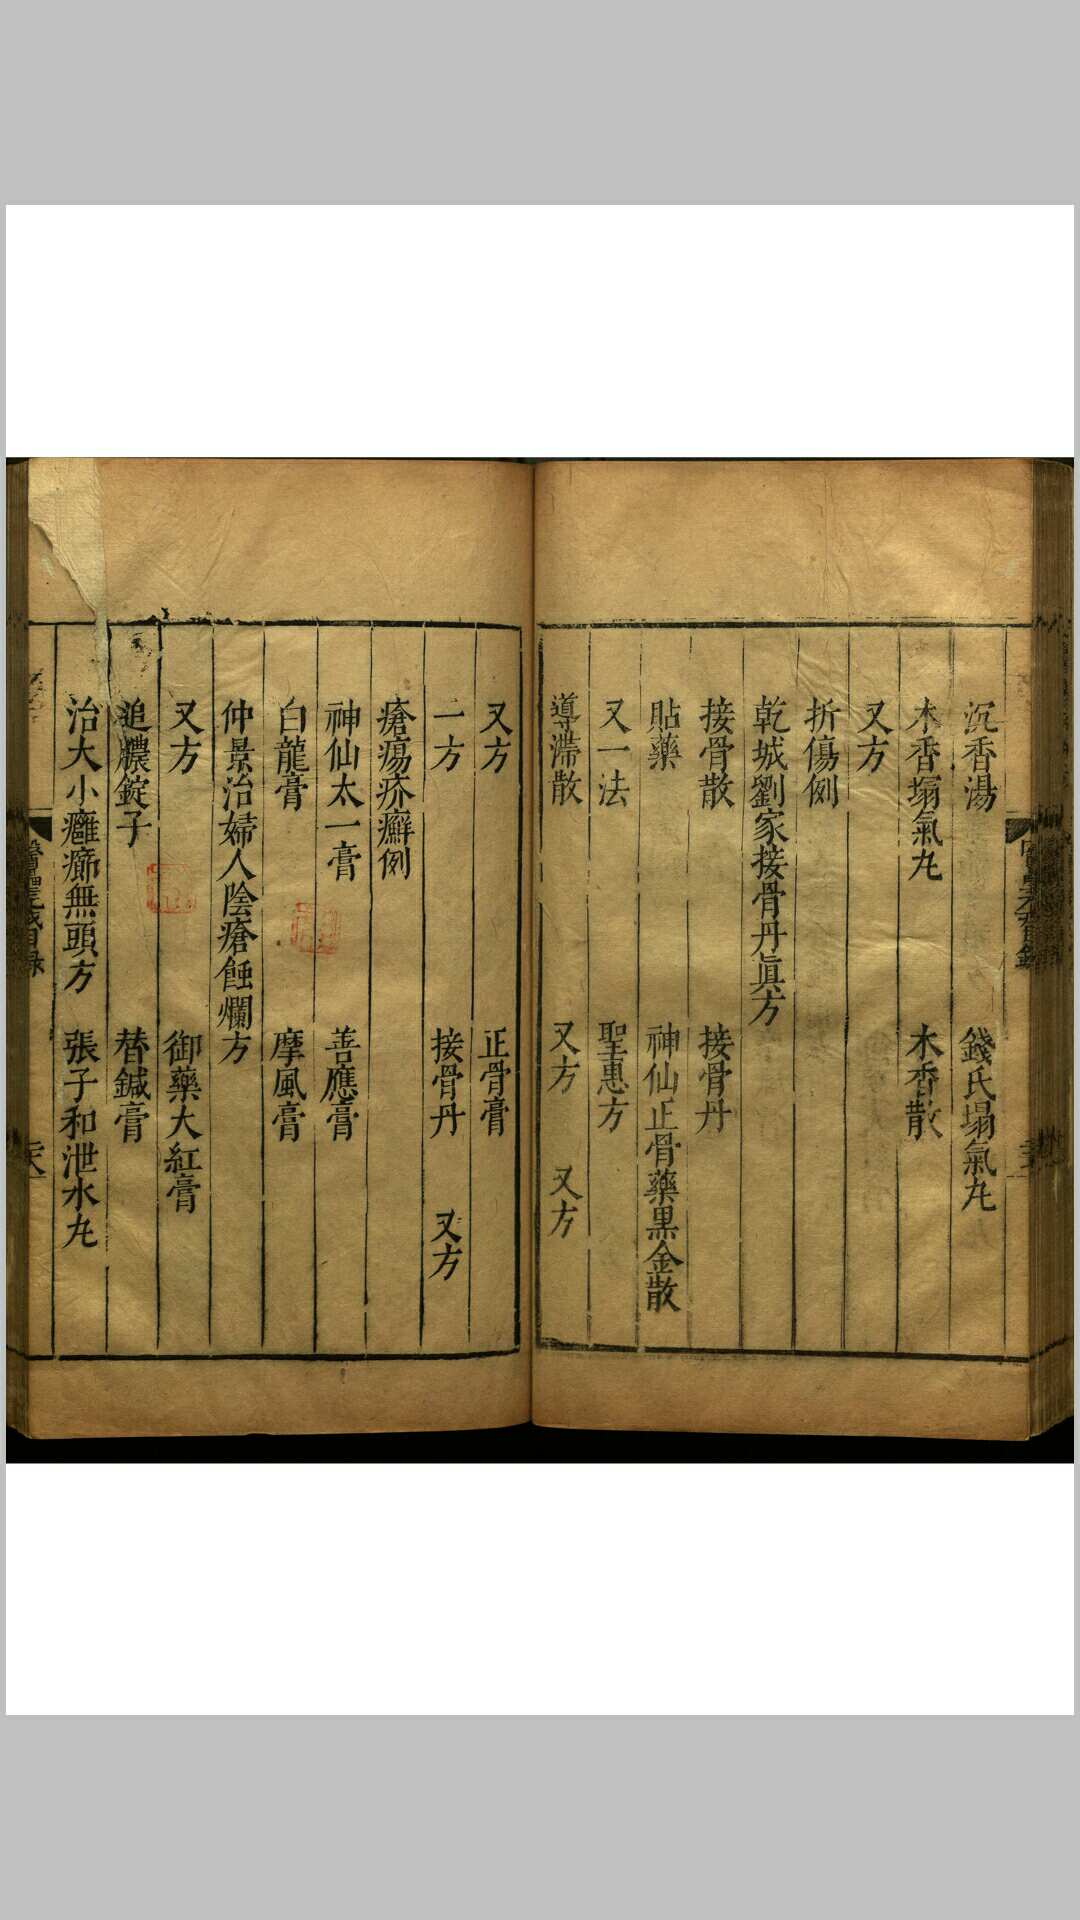 沉香湯　錢氏塌氣丸
木香塌氣丸　木香散
又方
折傷例
乾城劉家接骨丹眞方
接骨散　接骨丹
貼藥　神仙正骨藥黒金散
又一法　聖惠方
導滯散　又方　又方
又方　正骨膏
一方　接骨丹　又方
瘡瘍疥癬例
神仙太一膏　善應膏
白龍膏　摩風膏
仲景治婦人陰瘡蝕爛方
又方　御藥大紅膏
追膿錠子　替鍼膏
治大小癰癤無頭方　張子和泄水丸